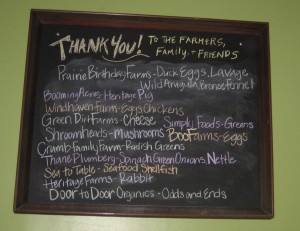 THANK YOU! TO THE FARMERS,
FAMILY, + FRIENDS
Prairie Birthday Farms - Duck Eggs, Lovage
Wild Arugula, Bronze Fennel
Booming Acres - Heritage Pig
Windhaven Farm - Eggs, Chickens
Green Dirt Farms - Cheese Simply Foods - Greens
Shroomheads - Mushrooms BooFarms - Eggs
Crumb Family Farm - Radish Greens
Thane Plumberg - Spinach Green Onions Nettle
Sea to Table - Seafood Shellfish
Heritage Farms - Rabbit
Door to Door Organics - Odds and Ends